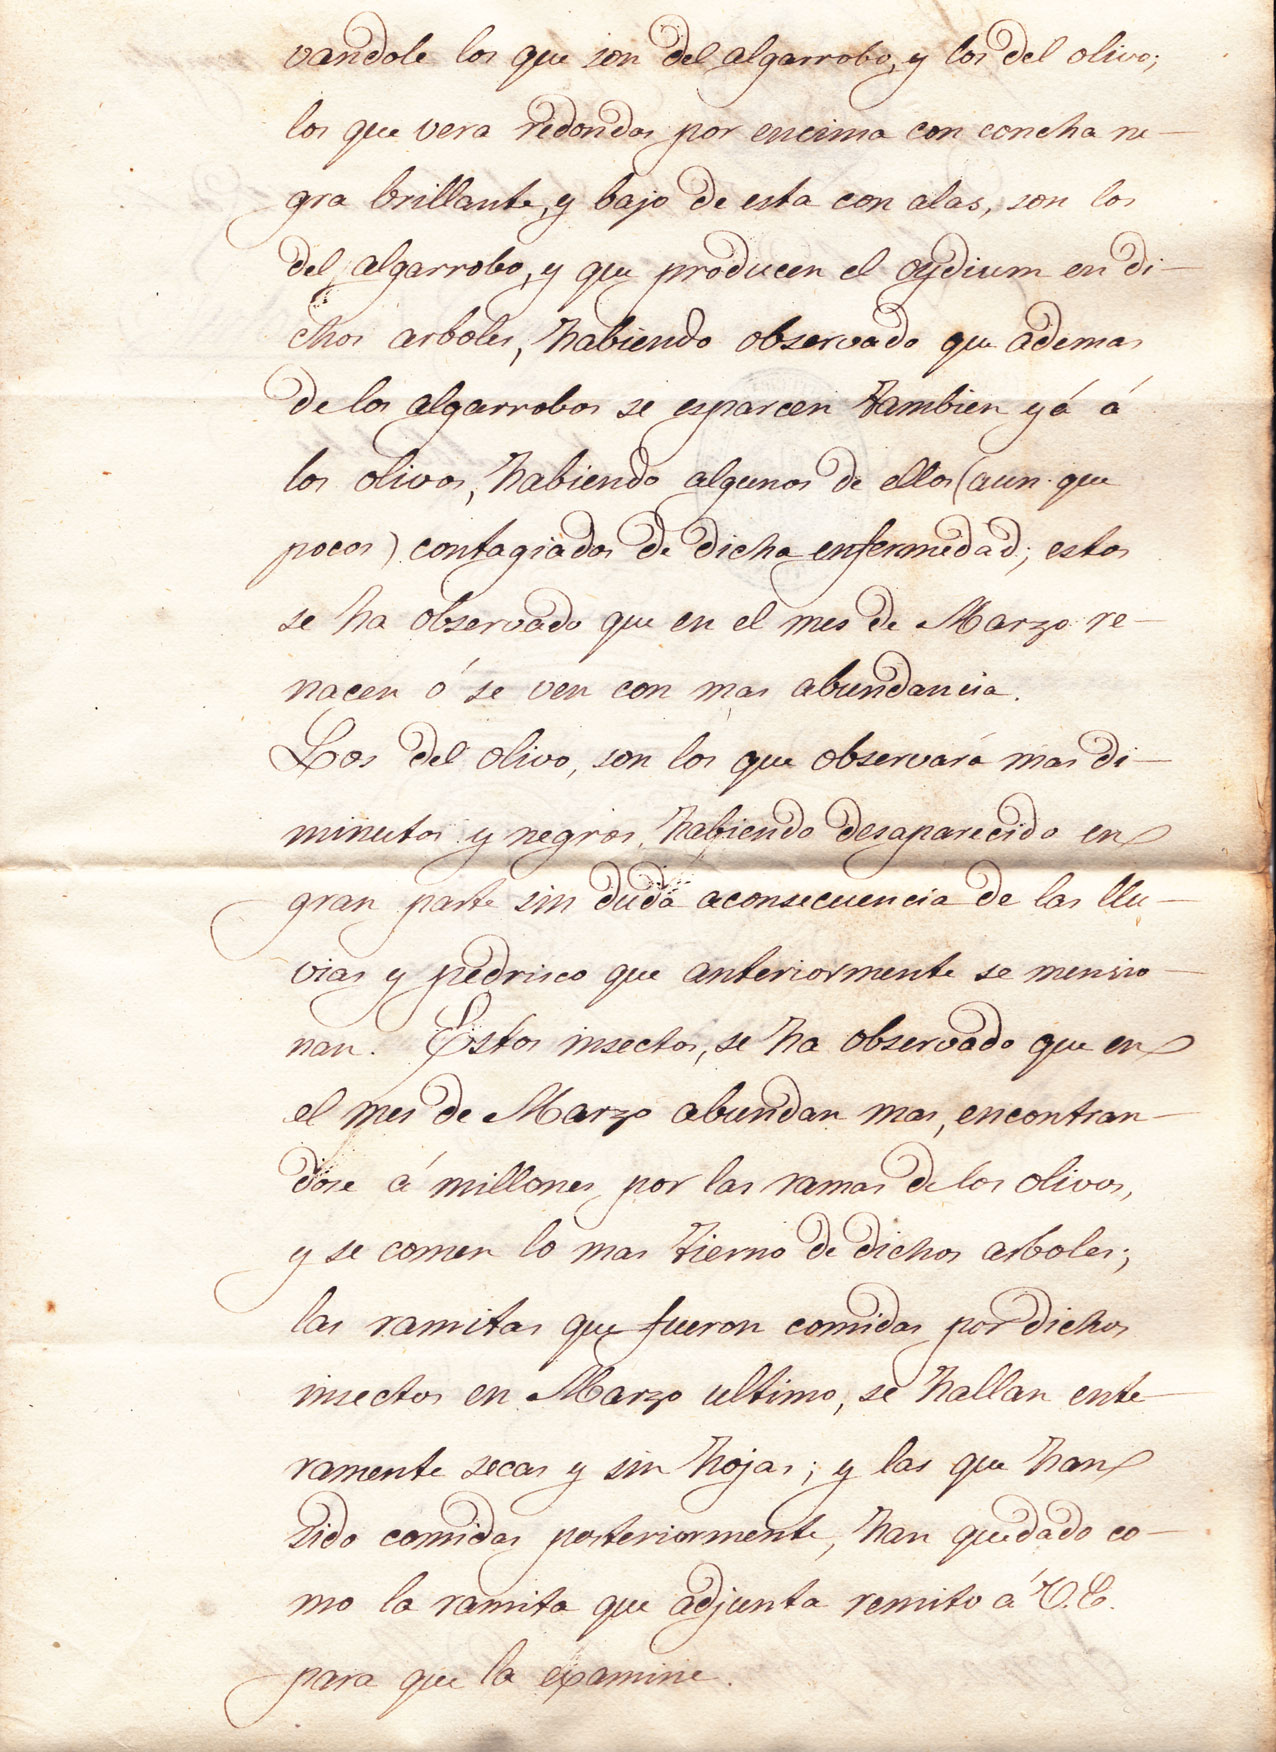 vandole los que son del algarrobo, y los del olivo;
los que vera redondos por encima con concha ne-
gra brillante, y bajo de esta con alas, son los
del algarrobo, y que producen el oydium en di-
chos arboles, habiendo observado que ademas
de los algarrobos se esparcen tambien yá á
los olivos, habiendo algunos de ellos (aun que
pocos) contagiados de dicha enfermedad; estos
se ha observado que en el mes de Marzo re-
nacen ó se ven con mas abundancia.
Los del olivo, son los que observará mas di-
minutos y negros, habiendo desaparecido en
gran parte sin duda aconsecuencia de las llu-
vias y pedrisco que anteriormente se mensio-
nan. Estos insectos, se ha observado que en
el mes de Marzo abundan mas, encontran-
dose á millones por las ramas de los olivos,
y se comen lo mas tierno de dichos arboles;
las ramitas que fueron comidas por dichos
insectos en Marzo ultimo, se hallan ente-
ramente secas y sin hojas; y las que han
sido comidas posteriormente, han quedado co-
mo la ramita que adjunta remito á V.E.
para que la examine.